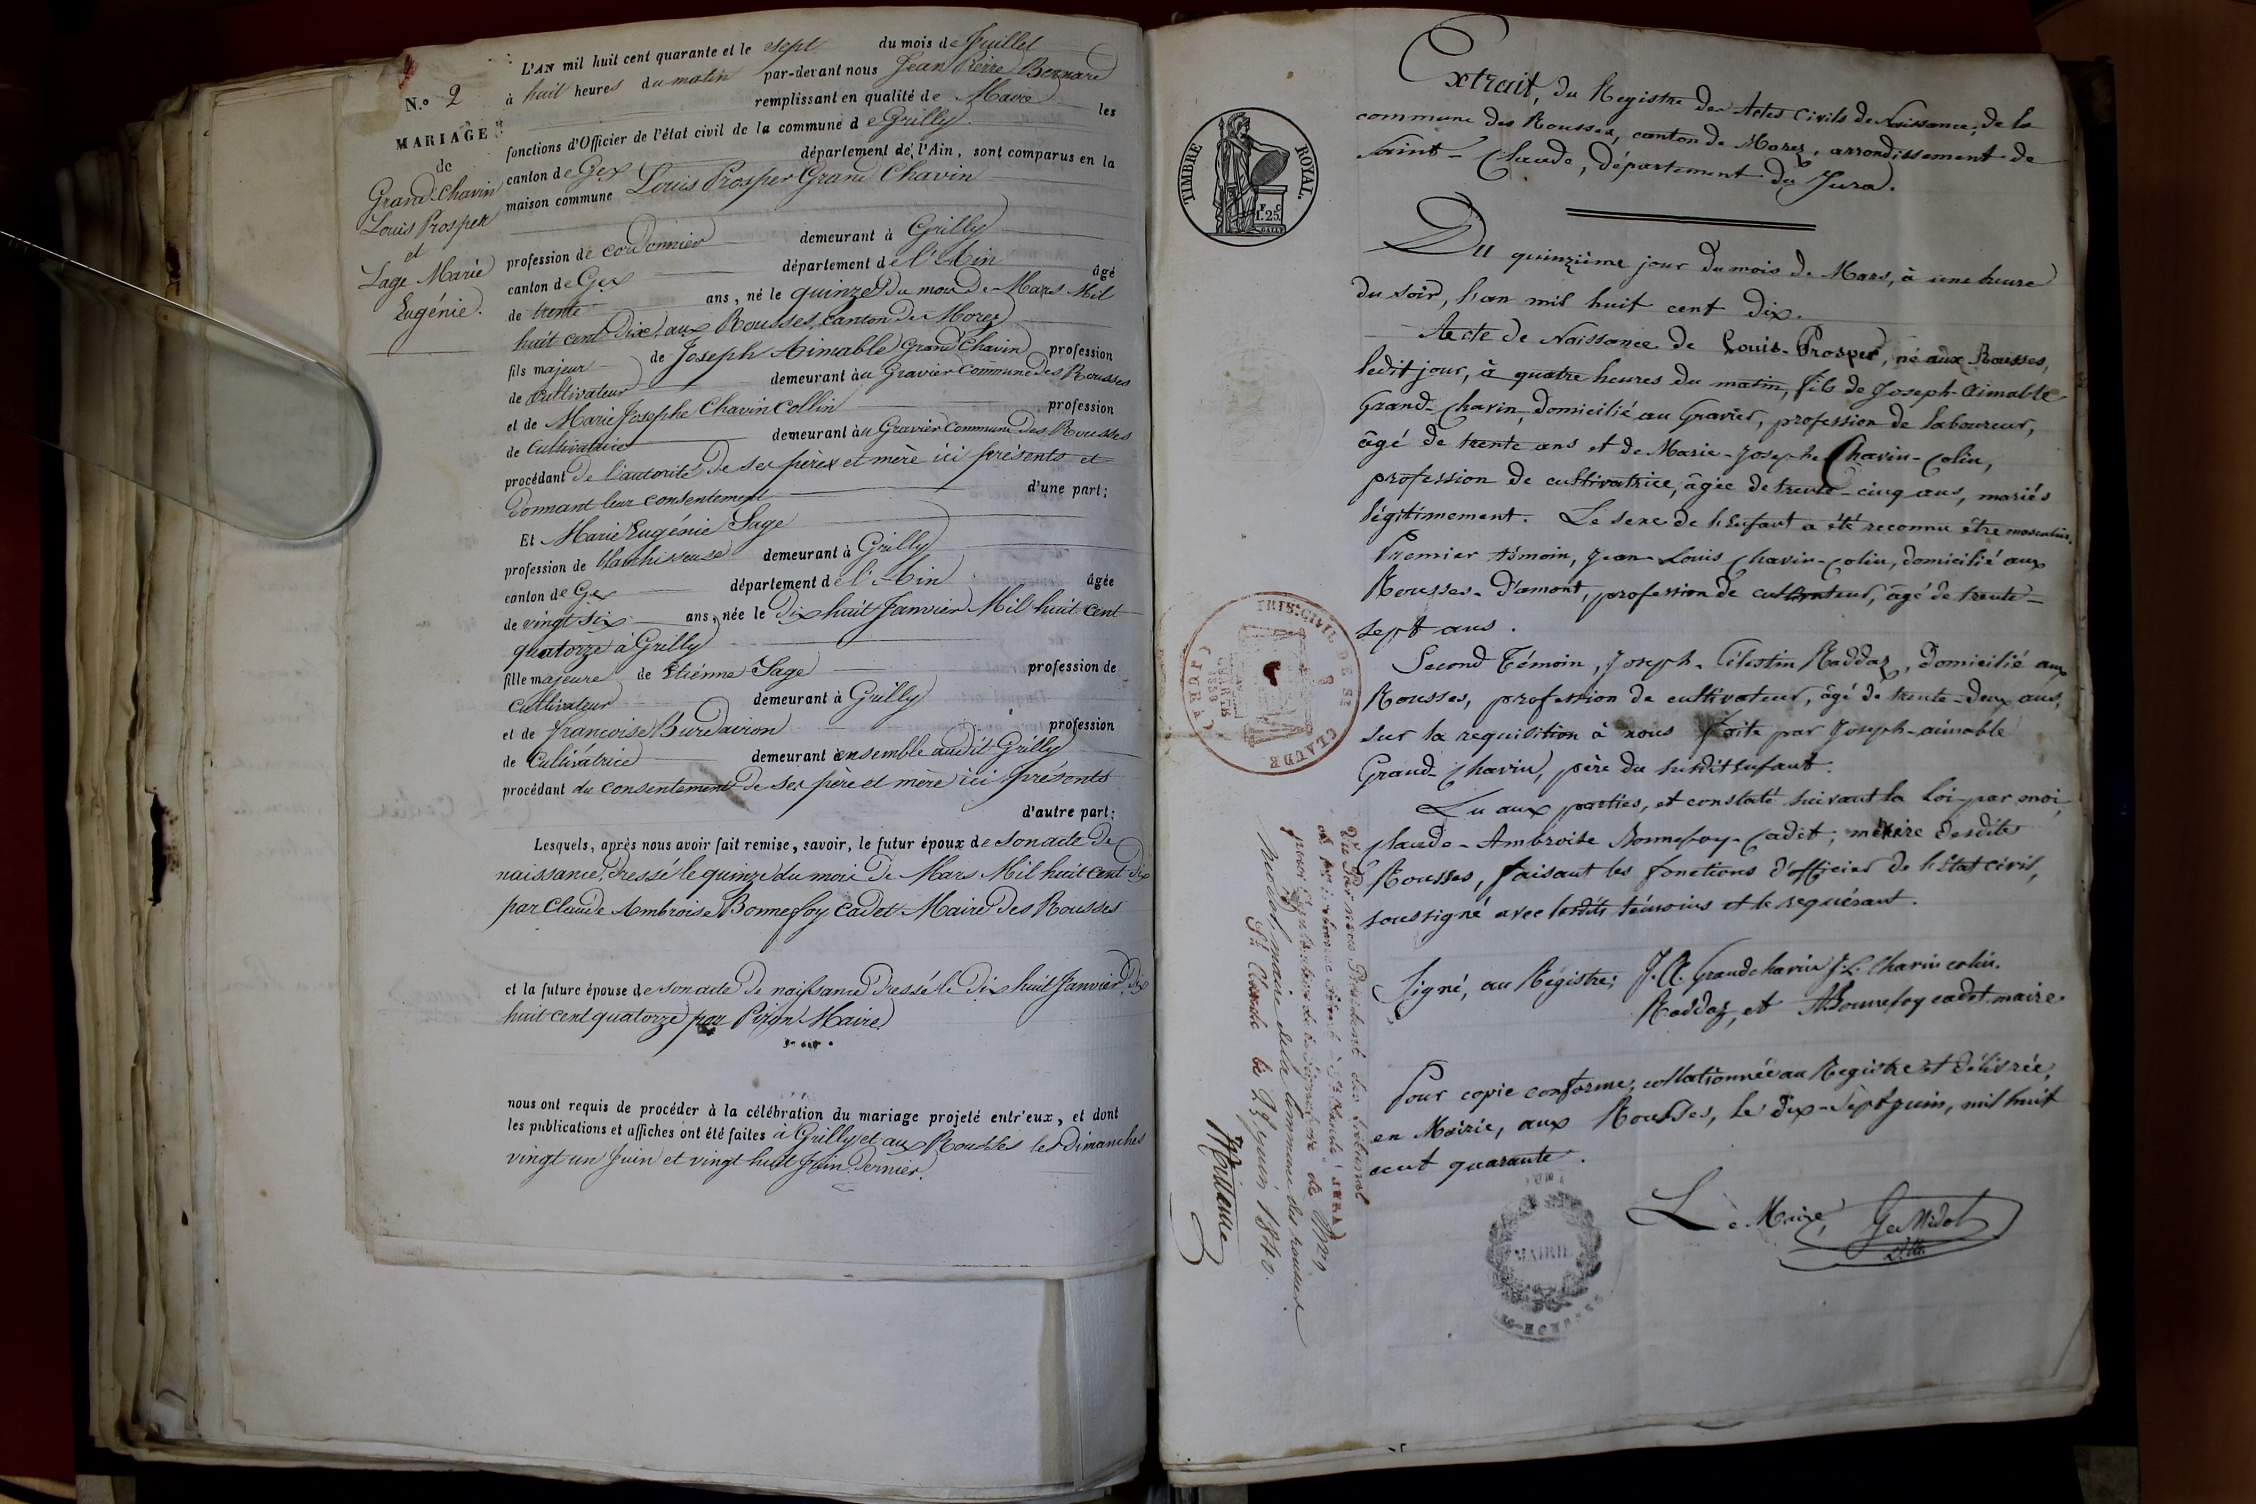 N.o 2
MARIAGE
de
Grand Chavin
Louis Prosper
et
Sage Marie
Eugénie.
L'AN mil huit cent quarante et le sept du mois de Juillet
à huit heures du matin par-devant nous Jean Pierre Bernard
remplissant en qualité de Maire les
fonctions d'Officier de l'état civil de la commune de Grilly
canton de Gex département de l'Ain, sont comparus en la
maison commune Louis Prosper Grand Chavin
profession de cordonnier demeurant à Grilly
canton de Gex département de l'Ain âgé
de trente ans, né le quinze du mois de Mars Mil
huit cent dix aux Rousses, canton de Morez
fils majeur de Joseph Aimable Grand Chavin profession
de cultivateur demeurant au Gravier Commune des Rousses
et de Marie Josephe Chavin Collin profession
de Cultivatrice demeurant au Gravier Commune des Rousses
procédant de l'autorité de ses pères et mère ici présents et
donnant leur consentement d'une part;
Et Marie Eugénie Sage
profession de blanchisseuse demeurant à Grilly
canton de Gex département de l'Ain âgée
de vingt six ans, née le dix huit Janvier Mil huit cent
quatorze à Grilly
fille majeure de Etiénne Sage profession de
Cultivateur demeurant à Grilly
et de françoise Burdairon profession
de Cultivatrice demeurant ensemble audit Grilly
procédant du consentement de ses père et mère ici présents
d'autre part:
Lesquels, après nous avoir fait remise, savoir, le futur époux de son acte de
naissance, dressé le quinze du mois de Mars Mil huit cent dix
par Claude Ambroise Bonnefoy Cadet Maire des Rousses
et la future épouse de son acte de naissance dressé le dix huit Janvier dix
huit cent quatorze par Maire
nous ont requis de procéder à la célébration du mariage projeté entr'eux, et dont
les publications et affiches ont été faites à Grilly et aux Rousses les dimanches
vingt un Juin et vingt huit Juin dernier.
TIMBRE ROYAL.
F. C
1.25
Extrait, du Registre des Actes Civils de Naissance, de la
commune des Rousses, canton de Morez, arrondissement de
Saint-Claude, département du Jura.
Du quinzième jour du mois de Mars, à une heure
du soir, l'an mil huit cent dix.
Acte de Naissance de Louis-Prosper, né aux Rousses,
ledit jour, à quatre heures du matin, fils de Joseph-Aimable
Grand-Chavin, domicilié au Gravier, profession de laboureur,
âgé de trente ans et de Marie-Josephe Chavin-Colin,
profession de cultivatrice, âgée de trente-cinq ans, mariés
légitimement. Le sexe de l'Enfant a été reconnu être masculin.
Premier témoin, Jean-Louis Chavin-Colin, domicilié aux
Rousses-d'amont, profession de cultivateur, âgé de trente-
sept ans.
Second Témoin, Joseph-Célestin Raddaz, domicilié aux
Rousses, profession de cultivateur, âgé de trente-deux ans,
sur la requisition à nous faite par Joseph-aimable
Grand-Chavin, père du susdit enfant.
Lu aux parties, et constaté suivant la Loi par moi,
Claude-Ambroise Bonnefoy-Cadet, maire desdites
Rousses, faisant les fonctions d'officier de l'Etat civil,
soussigné avec lesdits témoins et le requérant.
Signé, au Régistre; J. A. Grandchavin J. L. Chavin colin.
Raddaz, et Bonnefoy cadet maire
Pour copie conforme, collationnée au Registre et délivrée,
en Mairie, aux Rousses, le dix-sept juin, mil huit
cent quarante.
Le Maire,
MAIRIE
TRIB. CIVIL DE ST CLAUDE (JURA)
Vu Par nous Président du tribunal
pour légalisation de la signature de Mr
maire de la Commune des rousses
St Claude le juin 1840.